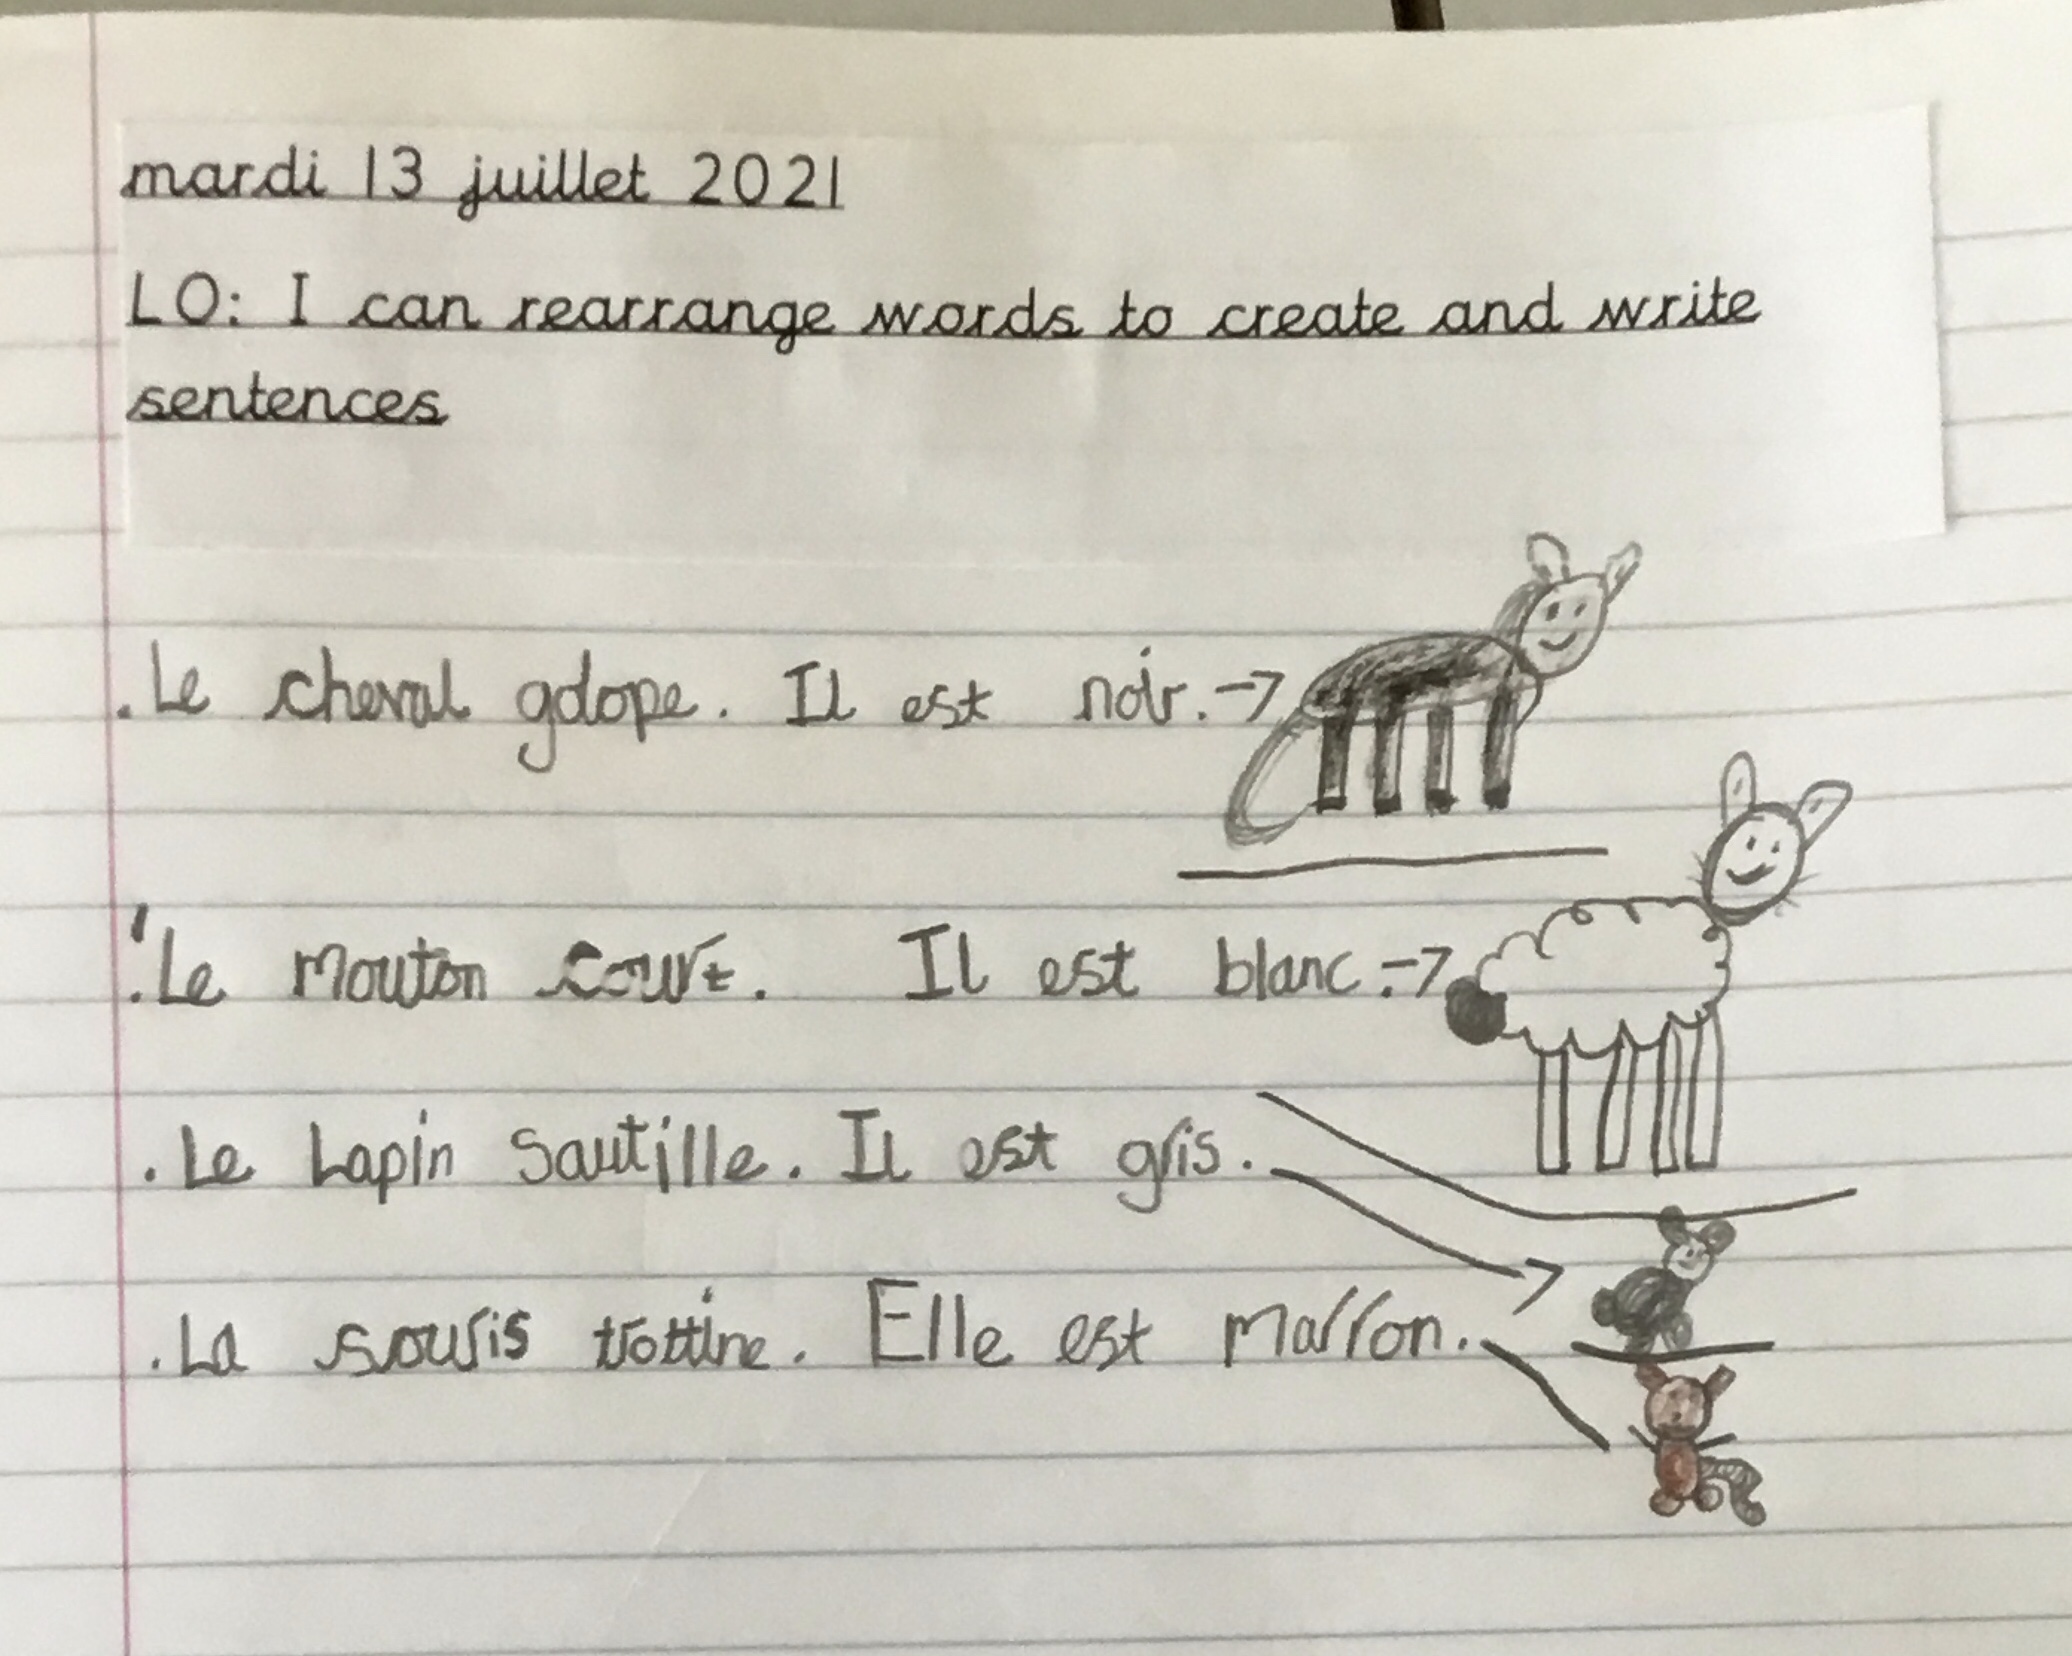 mardi 13 juillet 2021
LO: I can rearrange words to create and write
sentences
.Le cheval galope. Il est noir.→
.Le Mouton court. Il est blanc.→
.Le Lapin Sautille. Il est gris.
.La souris trottine. Elle est Marron.